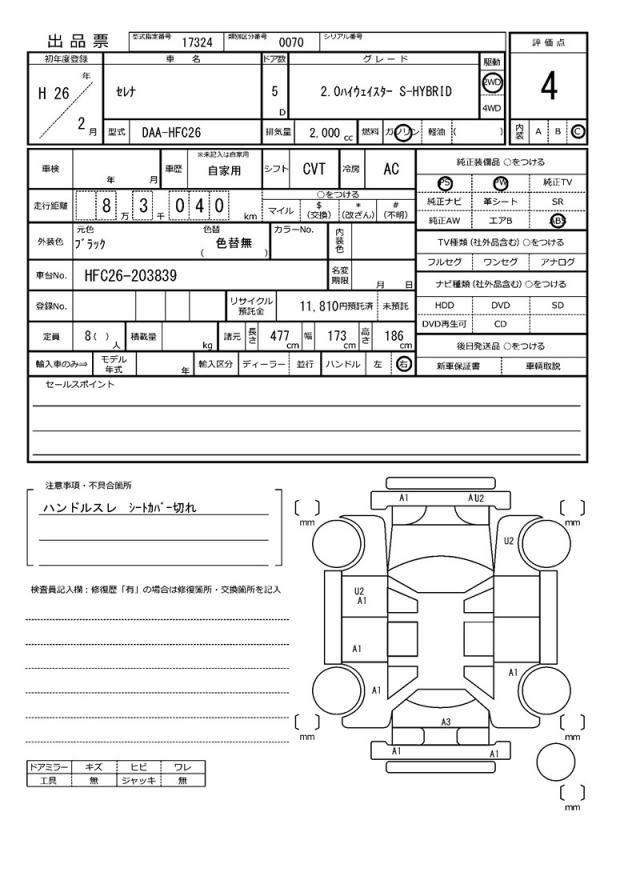 出品票
型式指定番号 17324 類別区分番号 0070 シリアル番号
評価点
4
内装 A B C
初年度登録 車名 ドア数 グレード 駆動
H 26 年 2 月
セレナ
5 D
2.0ハイウェイスター S-HYBRID
2WD
4WD
型式 DAA-HFC26 排気量 2,000 cc 燃料 ガソリン 軽油 ( )
車検 年 月 車歴 ※未記入は自家用 自家用 シフト CVT 冷房 AC
走行距離 8 万 3 千 0 4 0 km
○をつける
マイル $(交換) *(改ざん) #(不明)
外装色 元色 ブラック 色替 色替無 ( ) カラーNo. 内装色
車台No. HFC26-203839 名変期限 月 日
登録No. リサイクル預託金 11,810円預託済 未預託
定員 8( ) 人 積載量 kg 諸元 長さ 477 cm 幅 173 cm 高さ 186 cm
輸入車のみ⇒ モデル年式 年 輸入区分 ディーラー 並行 ハンドル 左 右
純正装備品 ○をつける
PS PW 純正TV
純正ナビ 革シート SR
純正AW エアB ABS
TV種類(社外品含む) ○をつける
フルセグ ワンセグ アナログ
ナビ種類(社外品含む) ○をつける
HDD DVD SD
DVD再生可 CD
後日発送品 ○をつける
新車保証書 車輌取説
セールスポイント
注意事項・不具合箇所
ハンドルスレ シートカバー切れ
検査員記入欄：修復歴「有」の場合は修復箇所・交換箇所を記入
ドアミラー キズ ヒビ ワレ
工具 無 ジャッキ 無
A1 AU2
[ ] mm
[ ] mm
U2
U2
A1
A1
A1
A1
A3
[ ] mm
[ ] mm
A1 A1
[ ] mm